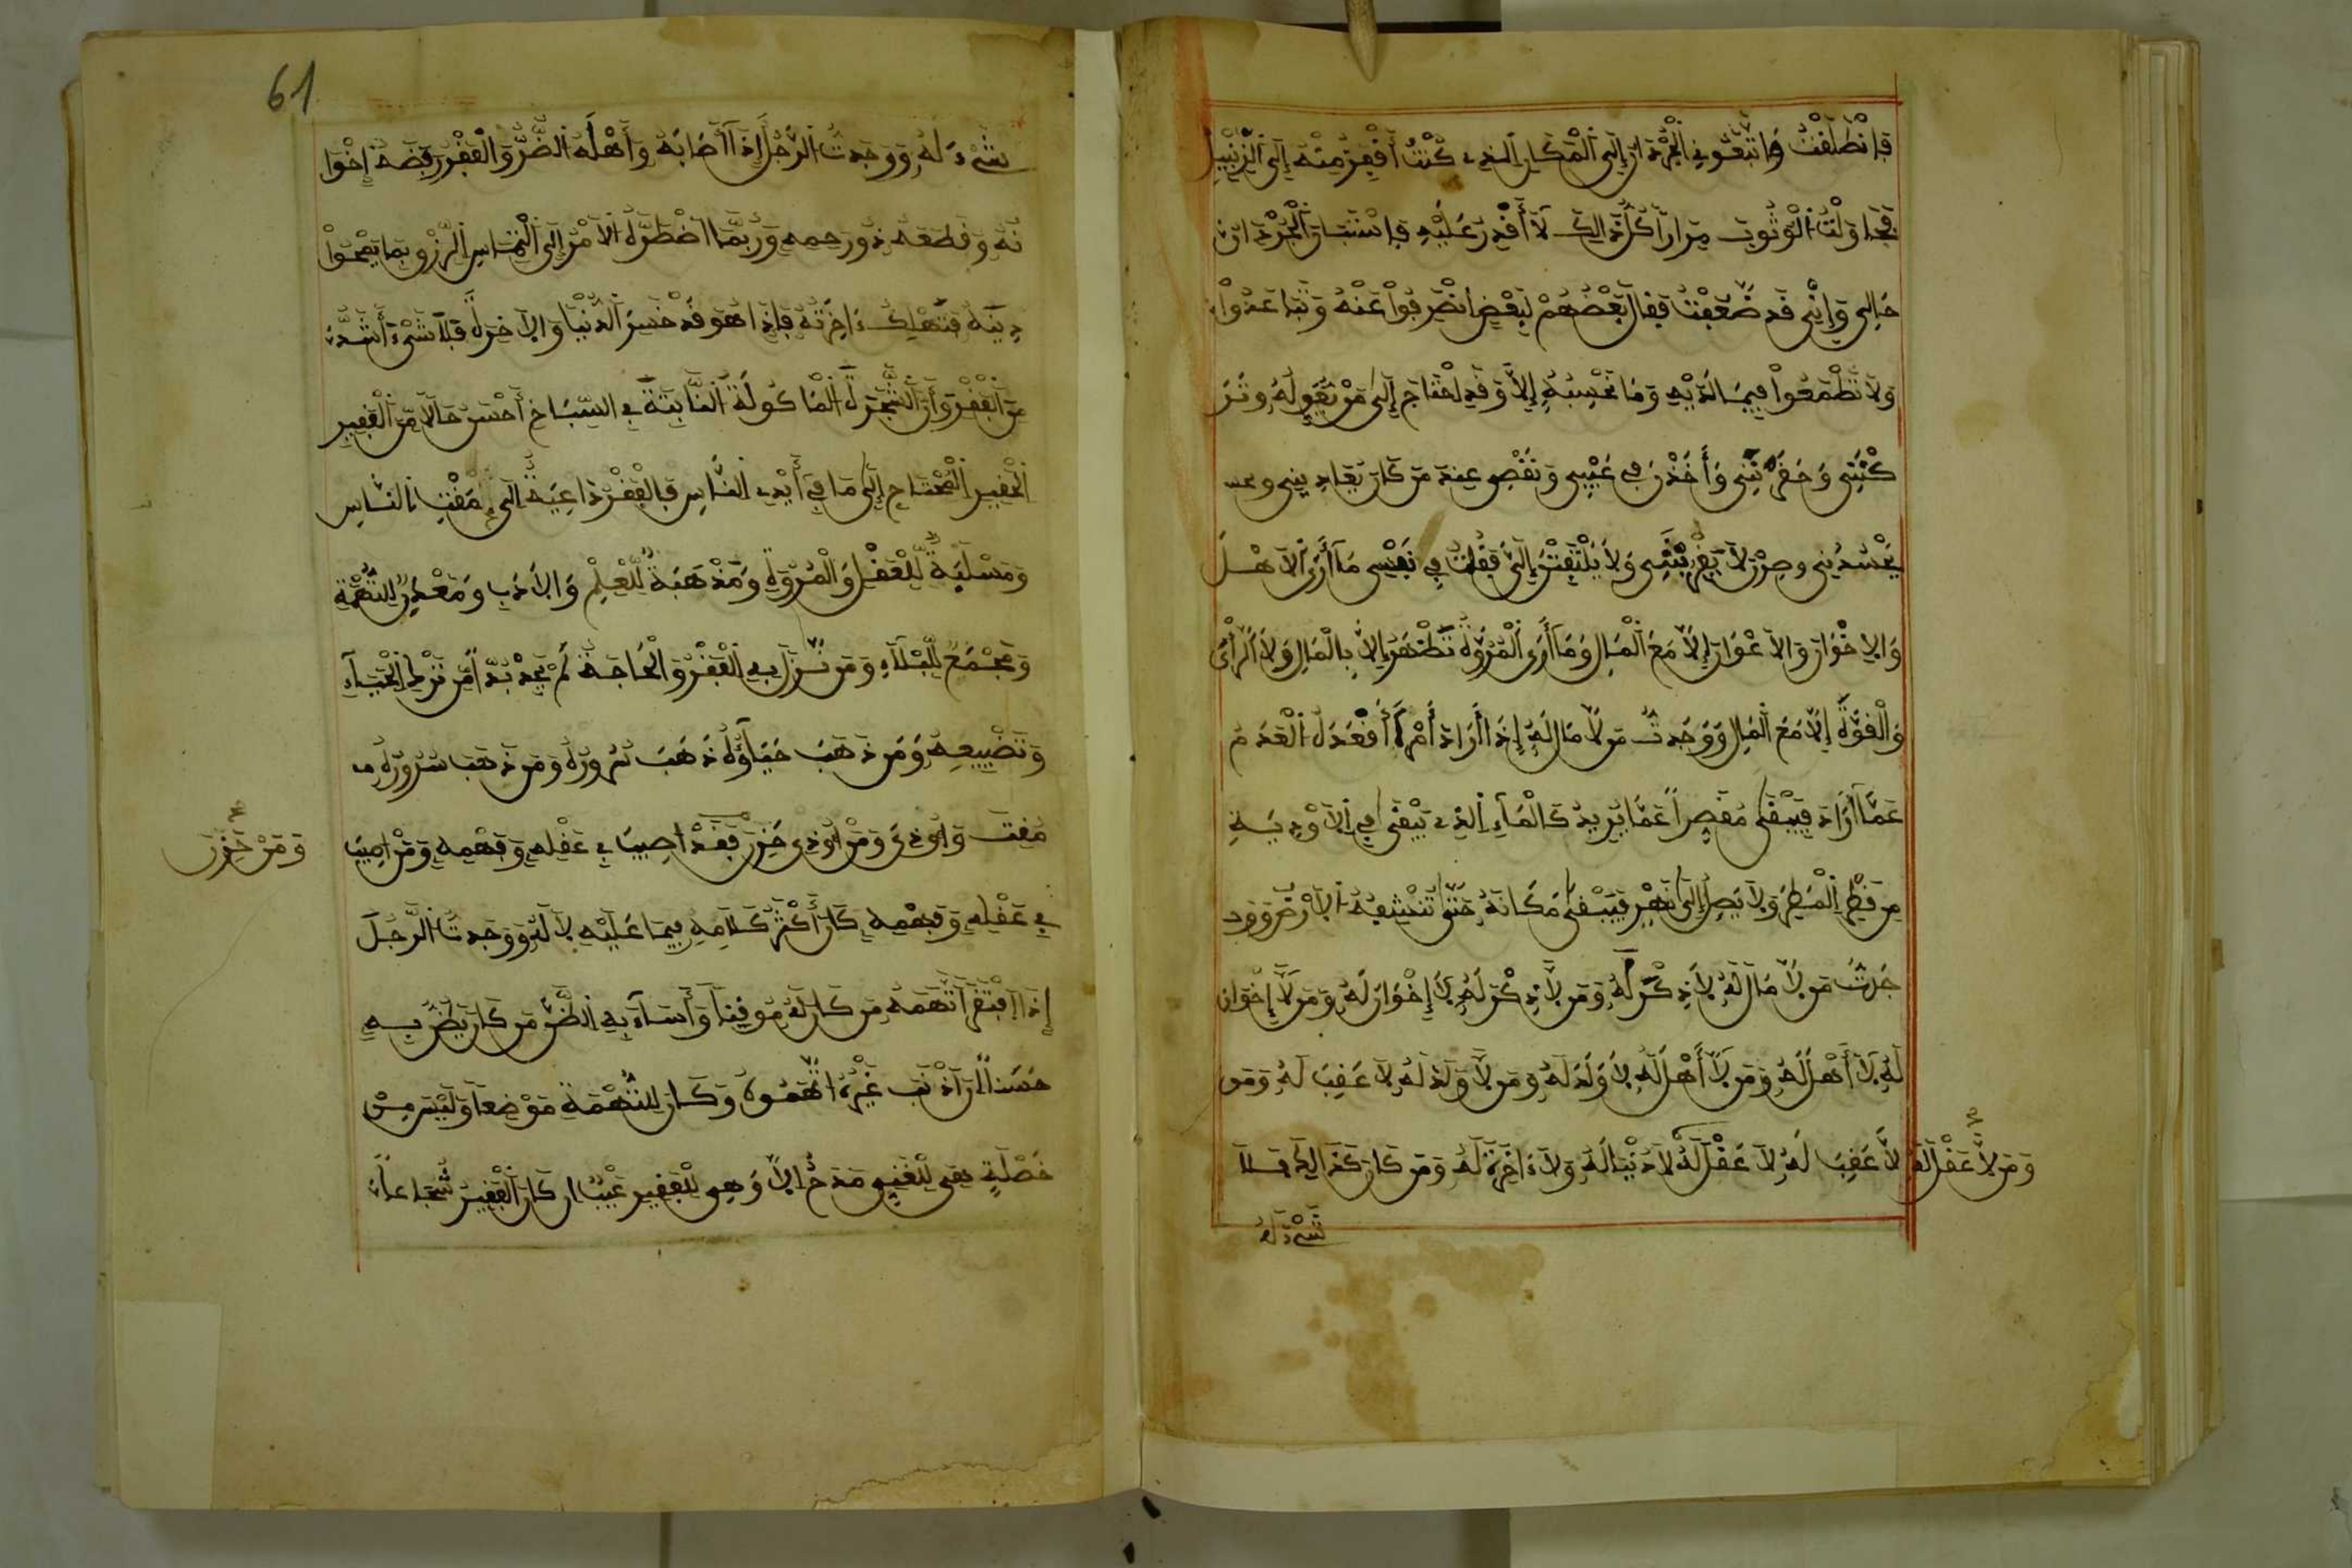 فانطلقت واتبعوني الجرذان إلى المكان الذي كنت أقفز منه إلى الزنبيل
فحاولت الوثوب مرارا كل ذلك لا أقدر عليه فاستبان الجرذان
حالي وإني قد ضعفت فقال بعضهم لبعض انصرفوا عنه وتباعدوا
ولا تطمعوا فيما لديه وما نحسبه إلا وقد احتاج إلى من يقوله وتر
كنني وحفرنني وأخذن في عيبي ونقص عند من كان يعاديني و
يحسدني وصرن لا يقربنني ولا يلتفتن إلي فقلت في نفسي ما أرى الاهل
والاخوان والاعوان إلا مع المال وما أرى المروة تظهر إلا بالمال ولا الرأي
والقوة إلا مع المال ووجدت من لا مال له إذا أراد أمرا أقعده العدم
عما أراد فيبقى مقصرا عما يريد كالماء الذي يبقى في الاودية
من قطر المطر ولا يصل إلى نهر فيبقى مكانه حتى تنشفه الارض ووجد
جدت من لا مال له لا ذكر له ومن لا ذكر له لا إخوان له ومن لا إخوان
له لا أهل له ومن لا أهل له لا ولد له ومن لا ولد له لا عقب له ومن
لا عقب له لا عقل له لا دنيا له ولا ءاخرة له ومن كان كذلك فلا
ومن لا عقل له
شيء له
61
شيء له ووجدت الرجل إذا أصابه وأهله الضر والفقر رفضه إخوا
نه وقطعه ذو رحمه وربما اضطره الامر إلى التماس الرزق بما يمحوا
دينه فتهلك ءاخرته فإذا هو قد خسر الدنيا والاخرة فلا شيء أشد
من الفقر وأن الشجرة الماكولة النابتة في السباخ أحسن حالا من الفقير
الحقير المحتاج إلى ما في أيدي الناس فالفقر داعية إلى مقت الناس
ومسلبة للعقل والمروة ومذهبة للعلم والادب ومعدن للتهمة
ومجمع للبلاء ومن نزل به الفقر والحاجة لم يجد بدا من ترك الحياء
وتضييعه ومن ذهب حياؤه ذهب سروره ومن ذهب سروره م
مقت وأوذي ومن أوذي حزن فقد اصيب في عقله وفهمه ومن اصيب
ومن حزن
في عقله وفهمه كان أكثر كلامه فيما عليه لا له ووجدت الرجل
إذا افتقر اتهمه من كان له موقنا وأساء به الظن من كان يظن به
حسنا إن أذنب غيره اتهموه وكان للتهمة موضعا وليس من
خصلة هي للغني مدح إلا وهي للفقير عيب إن كان الفقير شجاعا